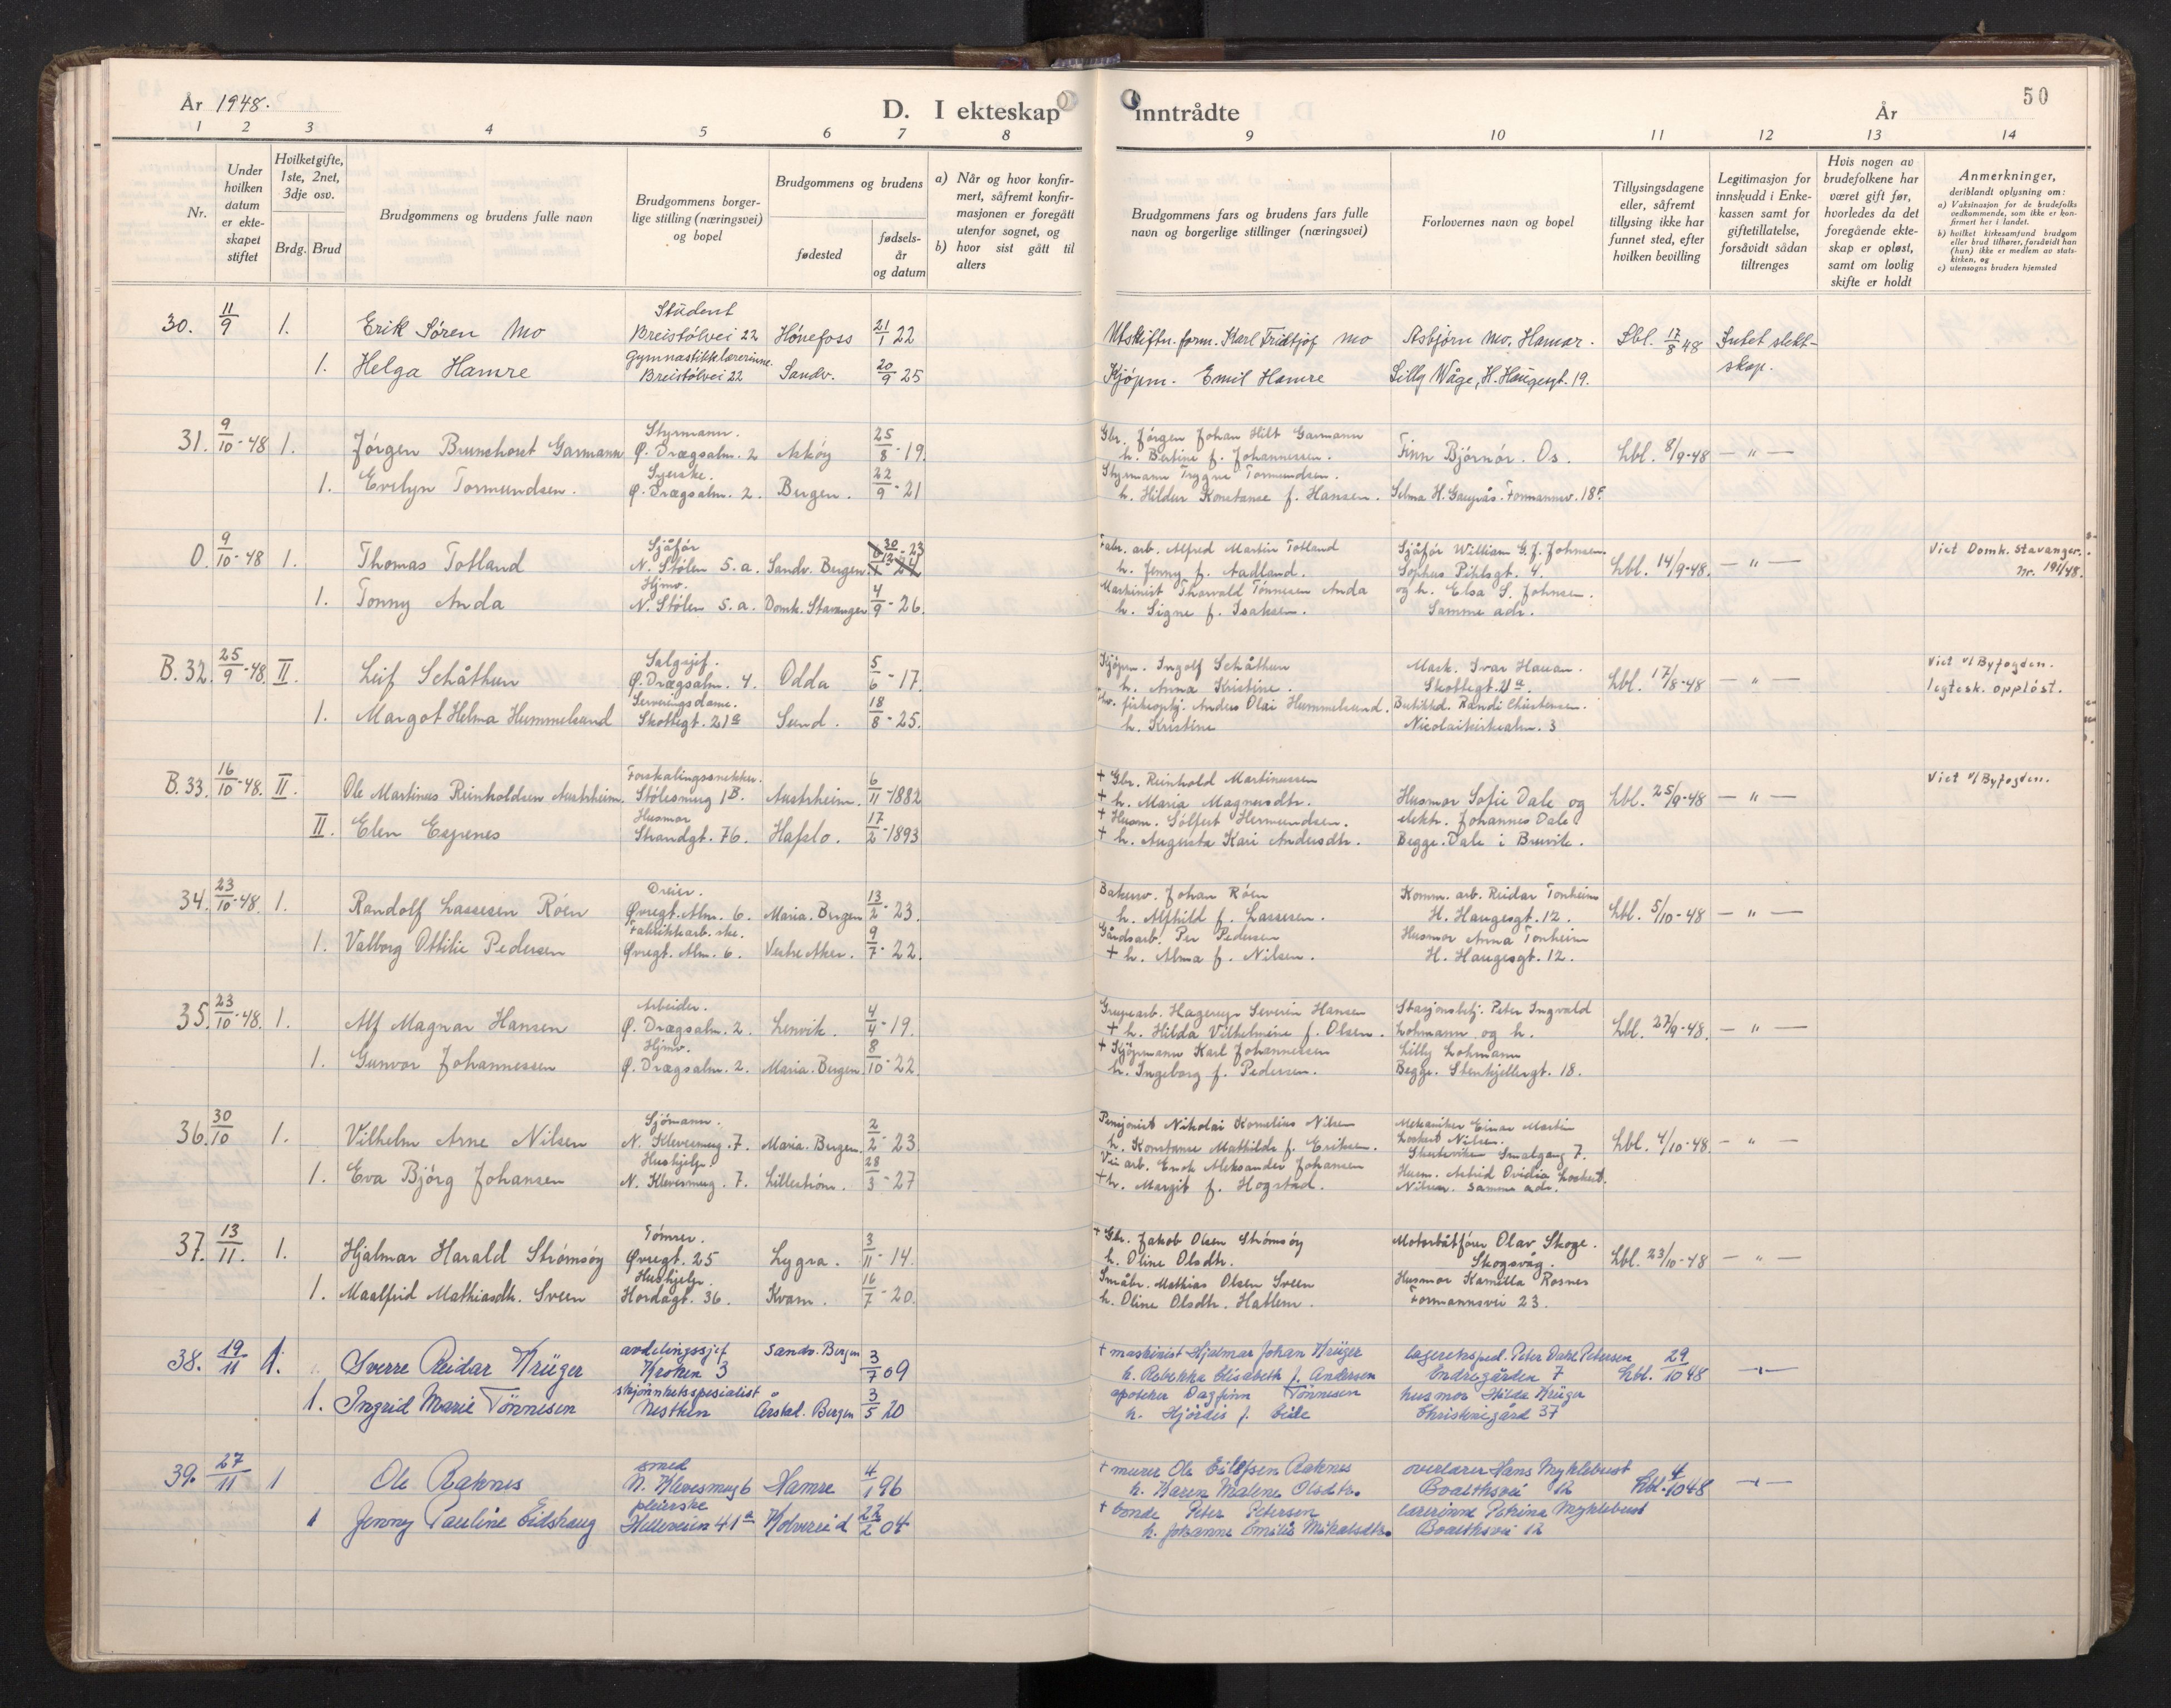 År 1948.
D. I ekteskap inntrådte
År
50
1 2 3 4 5 6 7 8 9 10 11 12 13 14
Nr.
Under hvilken datum er ekteskapet stiftet
Hvilket gifte, 1ste, 2net, 3dje osv.
Brdg. Brud
Brudgommens og brudens fulle navn
Brudgommens borgerlige stilling (næringsvei) og bopel
Brudgommens og brudens
fødested
fødselsår og datum
a) Når og hvor konfirmert, såfremt konfirmasjonen er foregått utenfor sognet, og
b) hvor sist gått til alters
Brudgommens fars og brudens fars fulle navn og borgerlige stillinger (næringsvei)
Forlovernes navn og bopel
Tillysingsdagene eller, såfremt tillysing ikke har funnet sted, efter hvilken bevilling
Legitimasjon for innskudd i Enkekassen samt for giftetillatelse, forsåvidt sådan tiltrenges
Hvis nogen av brudefolkene har været gift før, hvorledes da det foregående ekteskap er opløst, samt om lovlig skifte er holdt
Anmerkninger,
deriblandt oplysning om:
a) Vaksinasjon for de brudefolks vedkommende, som ikke er konfirmert her i landet.
b) hvilket kirkesamfund brudgom eller brud tilhører, forsåvidt han (hun) ikke er medlem av statskirken, og
c) utensogns bruders hjemsted
30. 11/9 1. Erik Søren Mo Student Breistølvei 22 Hønefoss 21/1 22 Utskiftn.form. Karl Fridtjof Mo Asbjørn Mo, Hamar. Lbl. 17/8 48 Intet slektskap.
1. Helga Hamre Gymnastikklærerinne. Breistølvei 22 Sandv. 20/9 25 Kjøpm. Emil Hamre Lilly Våge, H. Haugesgt. 19.
31. 9/10-48 1. Jørgen Brunchorst Garmann Styrmann. Ø. Drægsalm. 2 Askøy 25/8-19. Gbr. Jørgen Johan Hilt Garmann
h. Bertine f. Johannessen. Finn Bjørnør. Os. Lbl. 8/9-48 — " —
1. Evelyn Tormundsen. Syerske. Ø. Drægsalm. 2. Bergen. 22/9-21 Styrmann Trygve Tormundsen.
h. Hildur Konstanse f. Hansen. Selma H. Formannsv. 18F.
O. 9/10-48 1. Thomas Totland Sjåfør N. Stølen 5.a. Sandv. Bergen 30/12-23 Fabr. arb. Alfred Martin Totland
h. Jenny f. Aadland. Sjåfør William G. J. Johnsen. Sophus Pihlsgt. 4. Lbl. 14/9-48. — " — Viet Domk. Stavanger. nr. 191/48.
1. Tonny Anda Hjmv. N. Stølen 5.a. Domk. Stavanger 4/9-26. Maskinist Thorvald Tønnesen Anda
h. Signe f. Isaksen. og h. Elsa S. Johnsen. Samme adr.
B. 32. 25/9-48. II. Leif Schåthun Salgsjef. Ø. Drægsalm. 4. Odda 5/6-17. Kjøpm. Ingolf Schåthun
h. Anna Kristine. Mask. Ivar Hauan. Skottegt. 21a. Lbl. 17/8-48 — " — Viet v/Byfogden.
1 egtesk. oppløst.
1. Margot Helma Hummelsund Serveringsdame. Skottegt. 21a Sund. 18/8-25. Anders Olai Hummelsund.
h. Kristine Butikkd. Randi Christensen. Nicolaikirkealm. 3
B. 33. 16/10-48. II. Ole Martinus Reinholdsen Austrheim. Forskalingssnekker. Stølesmug 1B. Austrheim. 6/11-1882 + Gbr. Reinhold Martinussen
+ h. Maria Magnusdtr. Husmor Sofie Dale og Lbl. 25/9-48 — " — Viet v/Byfogden.
II. Elen Espenes Husmor Strandgt. 76. Hafslo. 17/2-1893 + Husm. Sølfest Hermundsen.
+ h. Augusta Kari Andersdtr. elektr. Johannes Dale Begge. Dale i Bruvik.
34. 23/10-48. 1. Randolf Lassesen Røen Dreier. Øvregt. Alm. 6. Maria. Bergen 13/2-23. Bakersv. Johan Røen
h. Alfhild f. Lassesen. Komm. arb. Reidar Tonheim H. Haugesgt. 12. Lbl. 5/10-48 — " —
1. Valborg Ottilie Pedersen Fabrikkarb.ske. Øvregt. Alm. 6. Vestre Aker. 9/7-22. Gårdsarb. Per Pedersen
+ h. Alma f. Nilsen. Husmor Anna Tonheim H. Haugesgt. 12.
35. 23/10-48. 1. Alf Magnar Hansen Arbeider. Ø. Drægsalm. 2. Lenvik. 4/4-19. Gruvearb. Hagerup Severin Hansen
+ h. Hilda Vilhelmine f. Olsen. Stasjonsbetj. Peter Ingvald Lohmann og h. Lbl. 27/9-48. — " —
1. Gunvor Johannessen Hjmv. Ø. Drægsalm. 2. Maria. Bergen. 8/10-22. + Kjøpmann Karl Johannessen
h. Ingeborg f. Pedersen. Lilly Lohmann Begge. Stenkjellergt. 18.
36. 30/10 1. Vilhelm Arne Nilsen Sjømann. N. Klevesmug. 7. Maria. Bergen. 2/2-23 Pensjonist Nikolai Kornelius Nilsen
h. Konstanse Mathilde f. Eriksen. Mekaniker Einar Martin Lockert Nilsen. Skuteviken Smalgang 7. Lbl. 4/10-48. — " —
1. Eva Bjørg Johansen Hushjelp. N. Klevesmug. 7. Lillestrøm. 28/3-27 Vei arb. Enok Aleksander Johansen
+ h. Margit f. Hogstad. Husm. Astrid Ovidia Lockert Nilsen. Samme adr.
37. 13/11. 1. Hjalmar Harald Strømsøy Tømrer. Øvregt. 25 Lygra. 3/11-14. + Gbr. Jakob Olsen Strømsøy
h. Oline Olsdtr. Motorbåtfører Olav Skoge. Skogsvåg. Lbl. 23/10-48 — " —
1. Maalfrid Mathiasdtr. Sveen Hushjelp. Hordagt. 36. Kvam. 16/7-20. Småbr. Mathias Olsen Sveen
h. Oline Olsdtr. Hatlem. Husmor Kamilla Rosnes Formannsvei 23.
38. 19/11 1. Sverre Reidar Krüger avdelingssjef Kroken 3 Sandv. Bergen 3/7 09 + maskinist Hjalmar Johan Krüger
h. Rebekka Elisabeth f. Andersen lagereksped. Peter Dahl Petersen Endregården 7 Lbl. 29/10 48 —"—
1. Ingrid Marie Tönnesen skjønnhetsspesialist Nesttun Årstad. Bergen 3/5 20 apoteker Dagfinn Tönnesen
h. Hjördis f. Eide husmor Hilda Krüger Christinegård 37
39. 27/11 1 Ole Raknes smed N. Klevesmug 6 Hamre 4/1 96 + murer Ole Eilefsen Raknes
h. Karen Malene Olsdtr. overlærer Hans Myklebust Boalthsvei 12 Lbl. 4/10 48 —"—
1 Jenny Pauline Eidshaug pleierske Helleveien 41a Kolvereid 22/2 04 + bonde Peter Petersen
h. Johanne Emilie Mikalsdtr. lærerinne Petrina Myklebust Boalthsvei 12